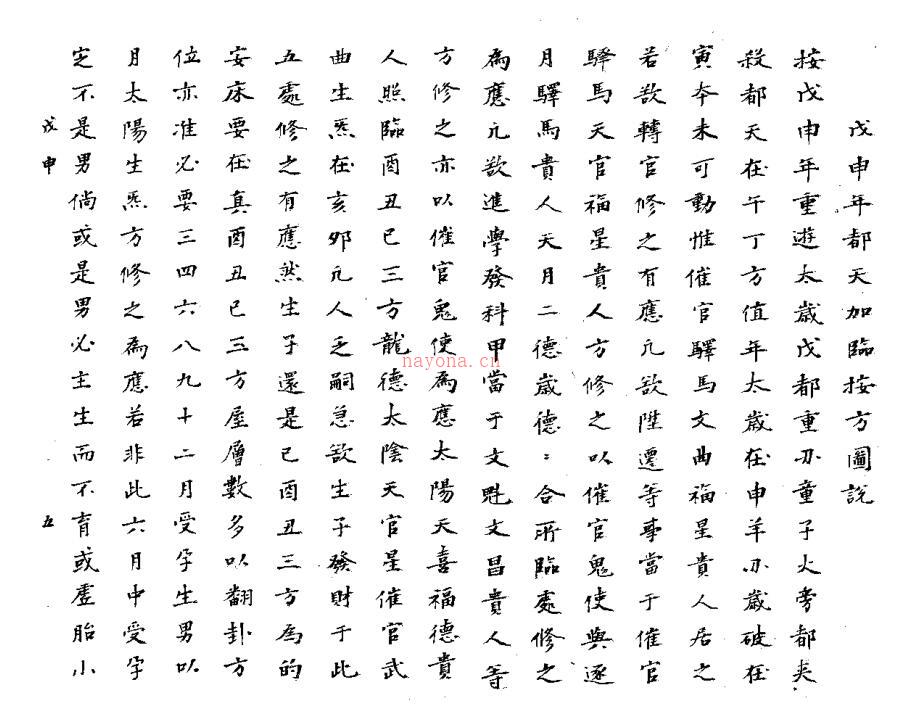 戊申年都天加臨按方圖說
按戊申年重遊太歲戊都重刃童子火旁都夾
殺都天在午丁方值年太歲在申羊刃歲破在
寅夲未可動惟催官驛馬文曲福星貴人居之
若欲轉官修之有應凢欲陞遷等亊當于催官
驛馬天官福星貴人方修之以催官鬼使與逐
月驛馬貴人天月二德歲德：合所臨處修之
為應凢欲進學發科甲當于文魁文昌貴人等
方修之亦以催官鬼使為應太陽天喜福德貴
人照臨酉丑巳三方龍德太陰天官星催官武
曲生炁在亥夘凢人乏嗣急欲生子發財于此
五處修之有應然生子還是巳酉丑三方為的
安床要在真酉丑巳三方屋層數多以翻卦方
位亦准必要三四六八九十二月受孕生男以
月太陽生炁方修之為應若非此六月中受孕
定不是男倘或是男必主生而不育或虛胎小
戊申
五
nayona.cn